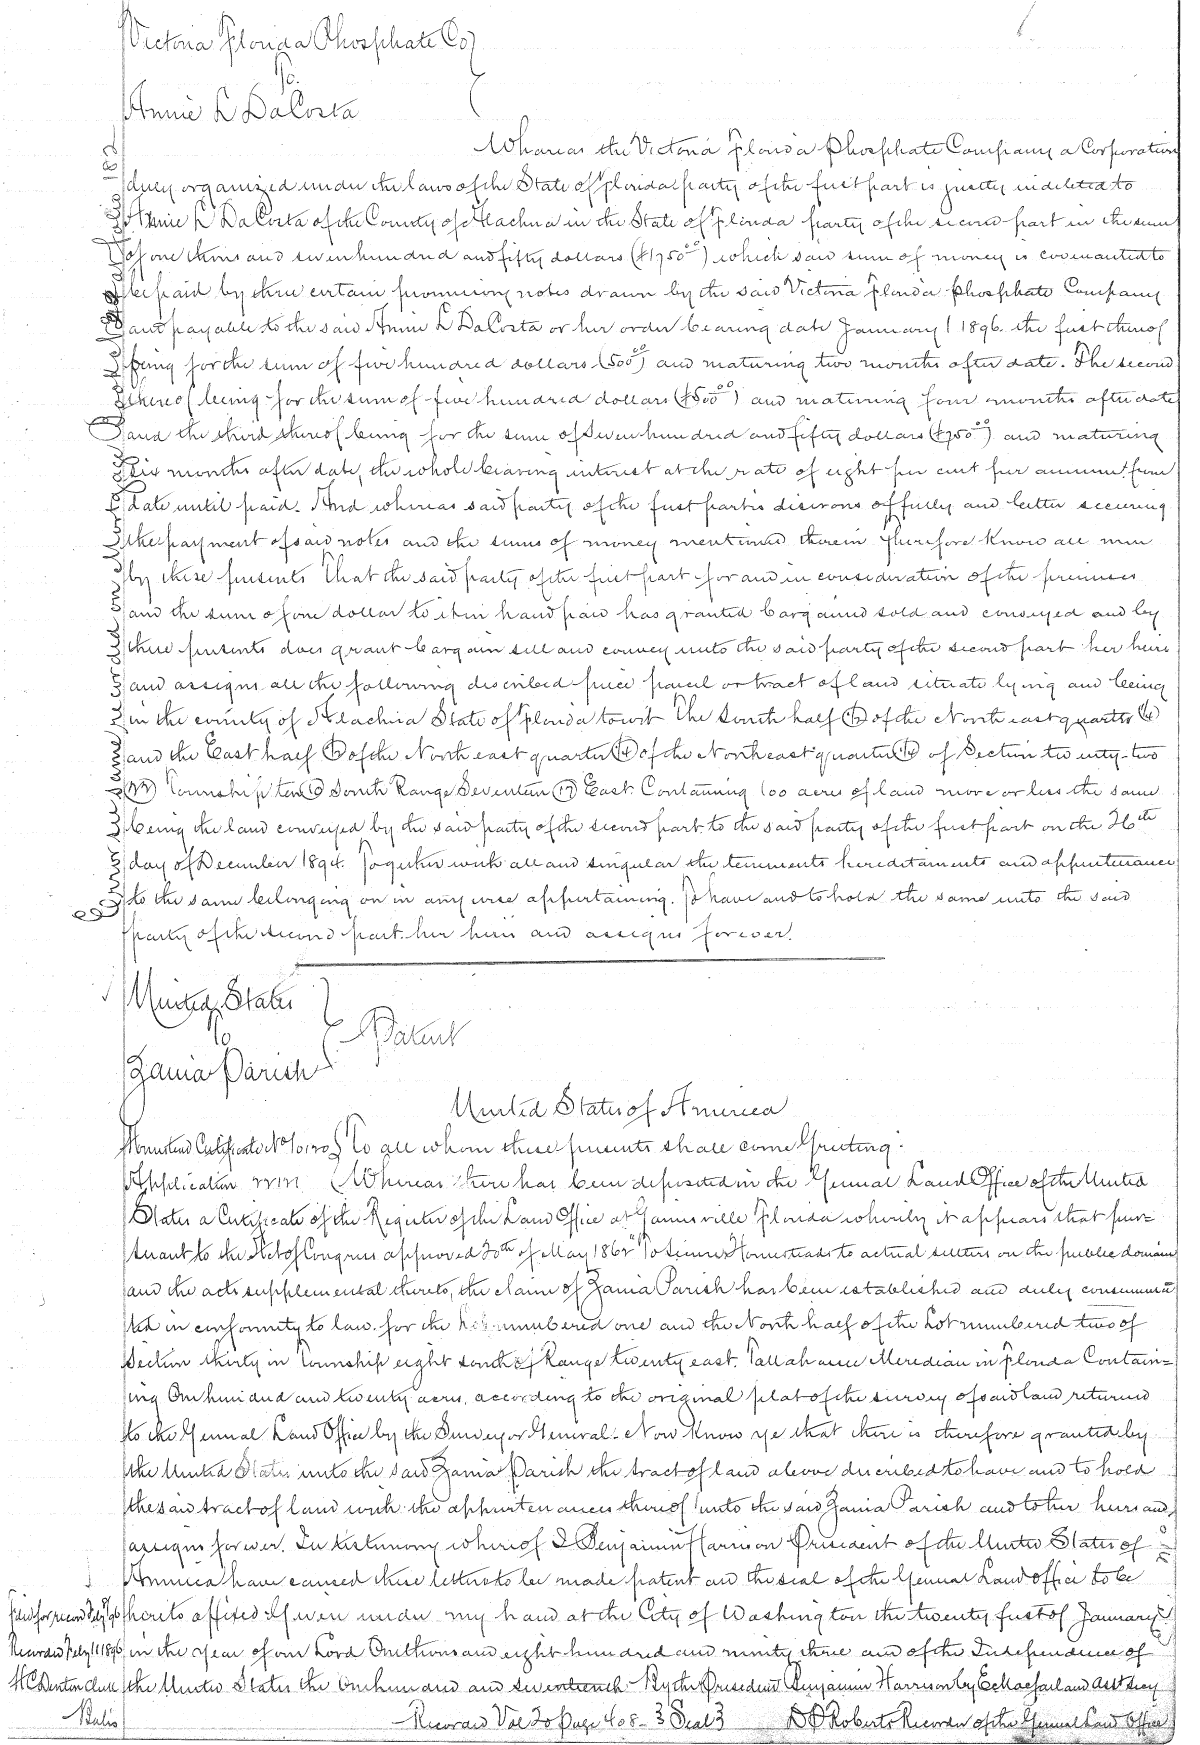 Victoria Florida Phosphate Co
To
Annie L DaCosta
Whereas the Victoria Florida Phosphate Company a Corporation
duly organized under the laws of the State of Florida party of the first part is justly indebted to
Annie L DaCosta of the County of Alachua in the State of Florida party of the second part in the sum
of one thous and seven hundred and fifty dollars ($1750.00) which said sum of money is covenanted to
be paid by three certain promissory notes drawn by the said Victoria Florida Phosphate Company
and payable to the said Annie L DaCosta or her order bearing date January 1 1896. the first thereof
being for the sum of five hundred dollars (500.00) and maturing two months after date. The second
thereof being for the sum of five hundred dollars ($500.00) and maturing four months after date
and the third thereof being for the sum of Seven hundred and fifty dollars ($750.00) and maturing
six months after date, the whole bearing interest at the rate of eight per cent per annum from
date until paid. And whereas said party of the first part is desirous of fully and better securing
the payment of said notes and the sums of money mentioned therein Therefore Know all men
by these presents That the said party of the first part for and in consideration of the premises
and the sum of one dollar to it in hand paid has granted bargained sold and conveyed and by
these presents does grant bargain sell and convey unto the said party of the second part her heirs
and assigns all the following described piece parcel or tract of land situate lying and being
in the county of Alachua State of Florida towit The South half (1/2) of the North east quarter (1/4)
and the East half (1/2) of the North east quarter (1/4) of the North east quarter (1/4) of Section twenty-two
(22) Township ten (10) South Range Seventeen (17) East. Containing 100 acres of land more or less the same
being the land conveyed by the said party of the second part to the said party of the first part on the 26th
day of December 1894. Together with all and singular the tenements hereditaments and appurtenances
to the same belonging or in any wise appertaining. To have and to hold the same unto the said
party of the second part. her heirs and assigns forever.
United States
To
Zania Parish
Patent
United States of America
Homestead Certificate No 10120 To all whom these presents shall come Greeting:
Application Whereas there has been deposited in the General Land Office of the United
States a Certificate of the Register of the Land Office at Gainesville Florida whereby it appears that pur=
suant to the Act of Congress approved 20th of May 1862 "To Secure Homesteads to actual settlers on the public domain
and the acts supplemental thereto, the claim of Zania Parish has been established and duly consumma
ted in conformity to law. for the Lot numbered one and the North half of the Lot numbered two of
Section thirty in Township eight south of Range twenty east. Tallahassee Meridian in Florida Contain=
ing One hundred and twenty acres, according to the original plat of the survey of said land returned
to the General Land Office by the Surveyor General. Now Know ye that there is therefore granted by
the United States unto the said Zania Parish the tract of land above described to have and to hold
the said tract of land with the appurtenances thereof unto the said Zania Parish and to her heirs and
assigns forever. In testimony whereof I Benjamin Harrison President of the United States of
America have caused these letters to be made patent and the seal of the General Land office to be
Filed for record Feby 96 hereto affixed Given under my hand at the City of Washington the twenty first of January
Recorded Feby 11 1896 in the year of our Lord One thous and eight hundred and ninety three and of the Independence of
H C Denton Clerk the United States the One hundred and seventeenth By the President Benjamin Harrison by E Macfarland Asst Secy
Recorded Vol 20 Page 408 - Seal D P Roberts Recorder of the General Land Office